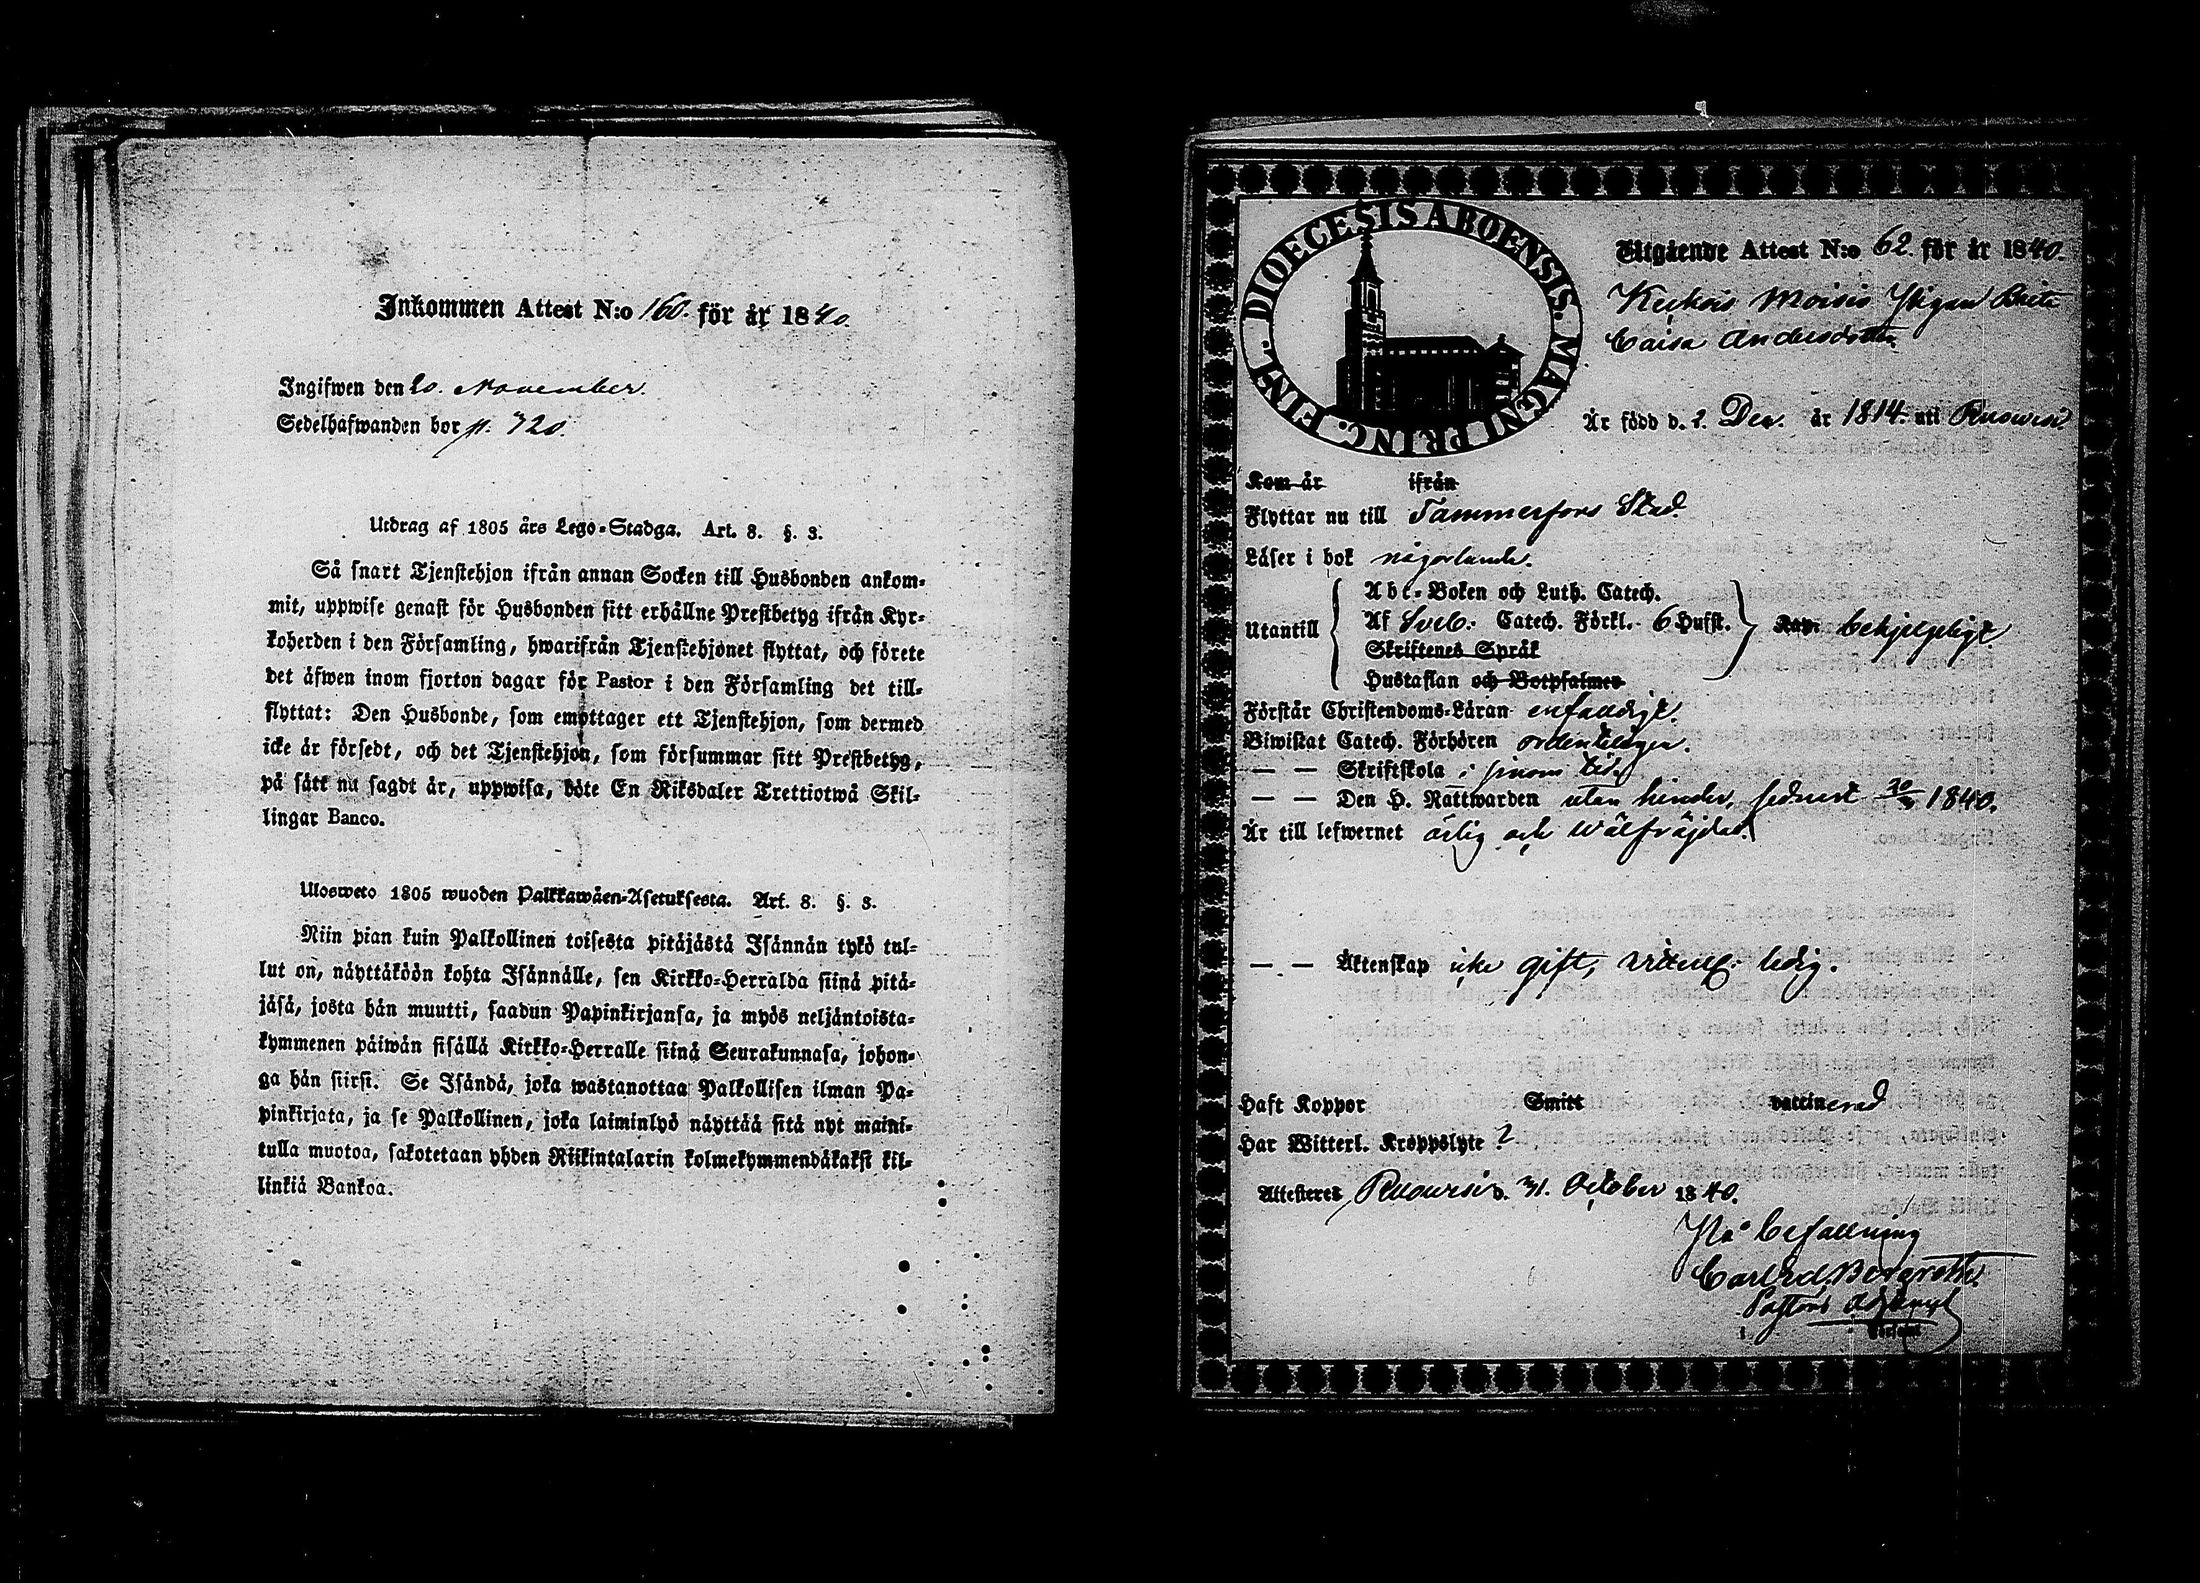 Inkommen Attest N:o 160. för år 1840.
Ingifwen den 20. November.
Sedelhafwanden bor p. 720.
Utdrag af 1805 års Lego-Stadga. Art. 8. §. 3.
Så snart Tjenstehjon ifrån annan Socken till Husbonden ankom-
mit, uppwise genast för Husbonden sitt erhållne Prestbetyg ifrån Kyr-
koherden i den Församling, hwarifrån Tjenstehjonet flyttat, och förete
det äfwen inom fjorton dagar för Pastor i den Församling det till-
flyttat: Den Husbonde, som emottager ett Tjenstehjon, som dermed
icke är försedt, och det Tjenstehjon, som försummar sitt Prestbetyg,
på sätt nu sagdt är, uppwisa, böte En Riksdaler Trettiotwå Skil-
lingar Banco.
Ulosweto 1805 wuoden Palkkawäen-Asetuksesta. Art. 8. §. 3.
Niin pian kuin Palkollinen toisesta pitäjästä Isännän tykö tul-
lut on, näyttäköön kohta Isännälle, sen Kirkko-Herralda siinä pitä-
jäsä, josta hän muutti, saadun Papinkirjansa, ja myös neljäntoista-
kymmenen päiwän sisällä Kirkko-Herralle siinä Seurakunnasa, johon-
ga hän siirsi. Se Isändä, joka wastanottaa Palkollisen ilman Pa-
pinkirjata, ja se Palkollinen, joka laiminlyö näyttää sitä nyt maini-
tulla muotoa, sakotetaan yhden Riikintalarin kolmekymmendäkaksi kil-
linkiä Bankoa.
DIOECESIS ABOENSIS. MAGNI PRINC. FINL.
Utgående Attest N:o 62. för år 1840.
Moisis Pigan Brita
Caisa Andersdotter
Är född d. 2. Dec. år 1814. uti Ruowesi.
Kom år ifrån
Flyttar nu till Tammerfors Stad.
Läser i bok någorlunda.
Utantill
Abc-Boken och Luth. Catech.
Af Sveb: Catech. Förkl. 6 Hufst.
Skriftenes Språk
Hustaflan och Botpsalmer
behjelpeligt
Förstår Christendoms-Läran enfaldigt.
Biwistat Catech. Förhören ordenteligen.
— — Skriftskola i sinom tid.
— — Den H. Nattwarden utan hinder, sednast 1840.
Är till lefwernet ärlig och wälfräjdad.
— — Äktenskap icke gift, ledig.
Haft Koppor Smitt vaccinerad
Har Witterl. Kroppslyte ?
Attesteres Ruowesi d. 31. October 1840.
På befallning
Carl Bergroth.
Pastors Adjunct